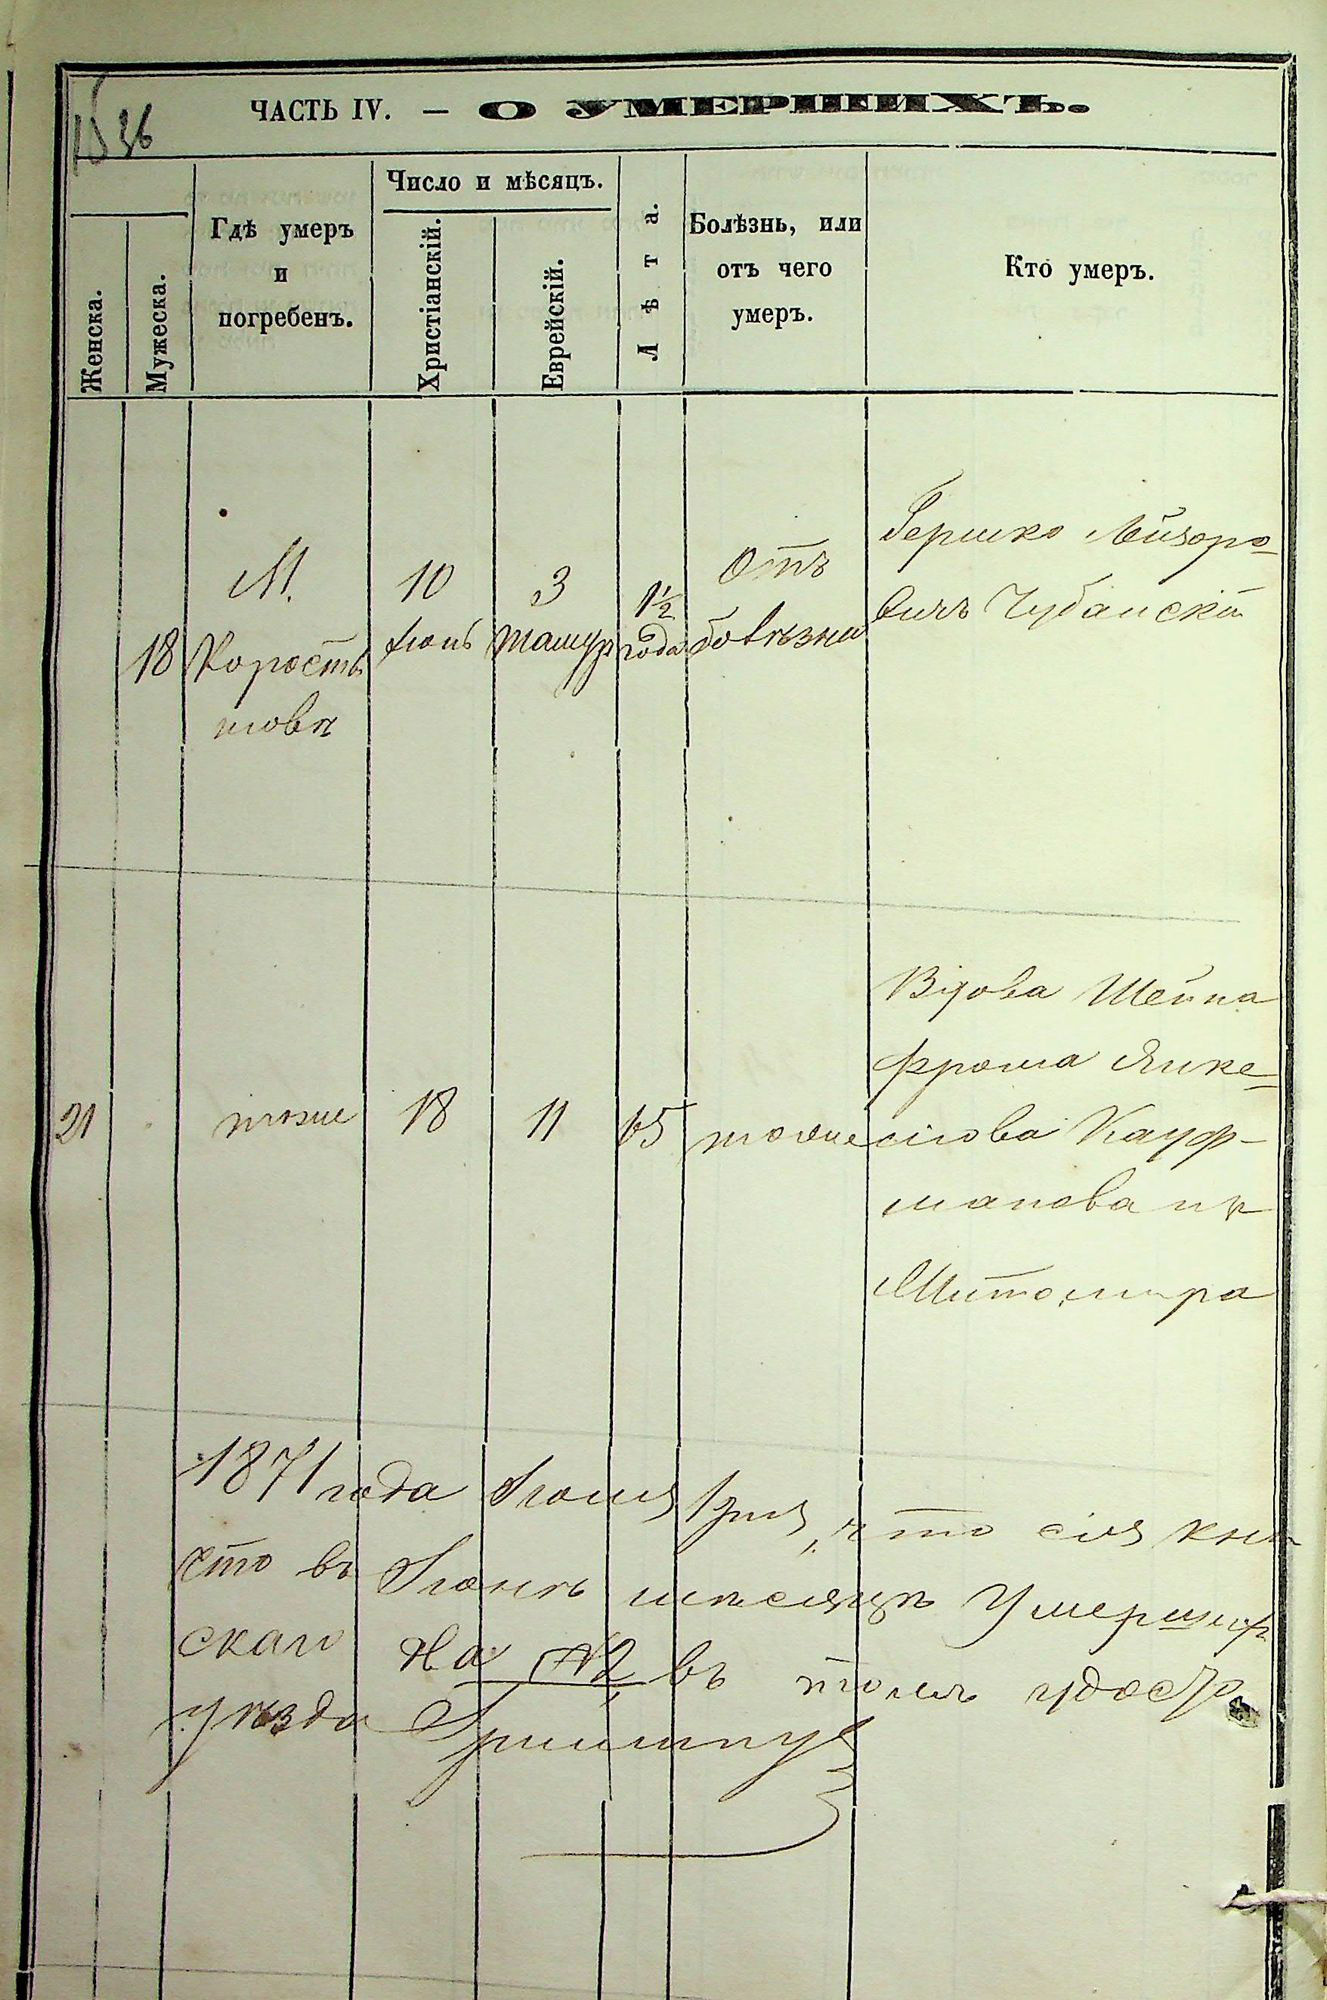 36
ЧАСТЬ IV. — О УМЕРШИХЪ.
Женска.
Мужеска.
Гдѣ умеръ
и
погребенъ.
Число и мѣсяцъ.
Христіанскій.
Еврейскій.
Лѣта.
Болѣзнь, или
отъ чего
умеръ.
Кто умеръ.
18
М.
Коросты
шовѣ
10
Іюнь
3
Тамуз
1½
года
Отъ
болѣзни
Гершко Лейзоро-
вичъ Чубанскій
21
тоже
18
11
65
тоже
Вдова Шейна
Фрома Янке-
ліова Кауф-
манова изъ
Житомира
1871 года Іюля 1 дня, что сія кни
что въ Іюнѣ мѣсяцѣ умерших
скаго На №2 въ томъ удосто
уѣзда